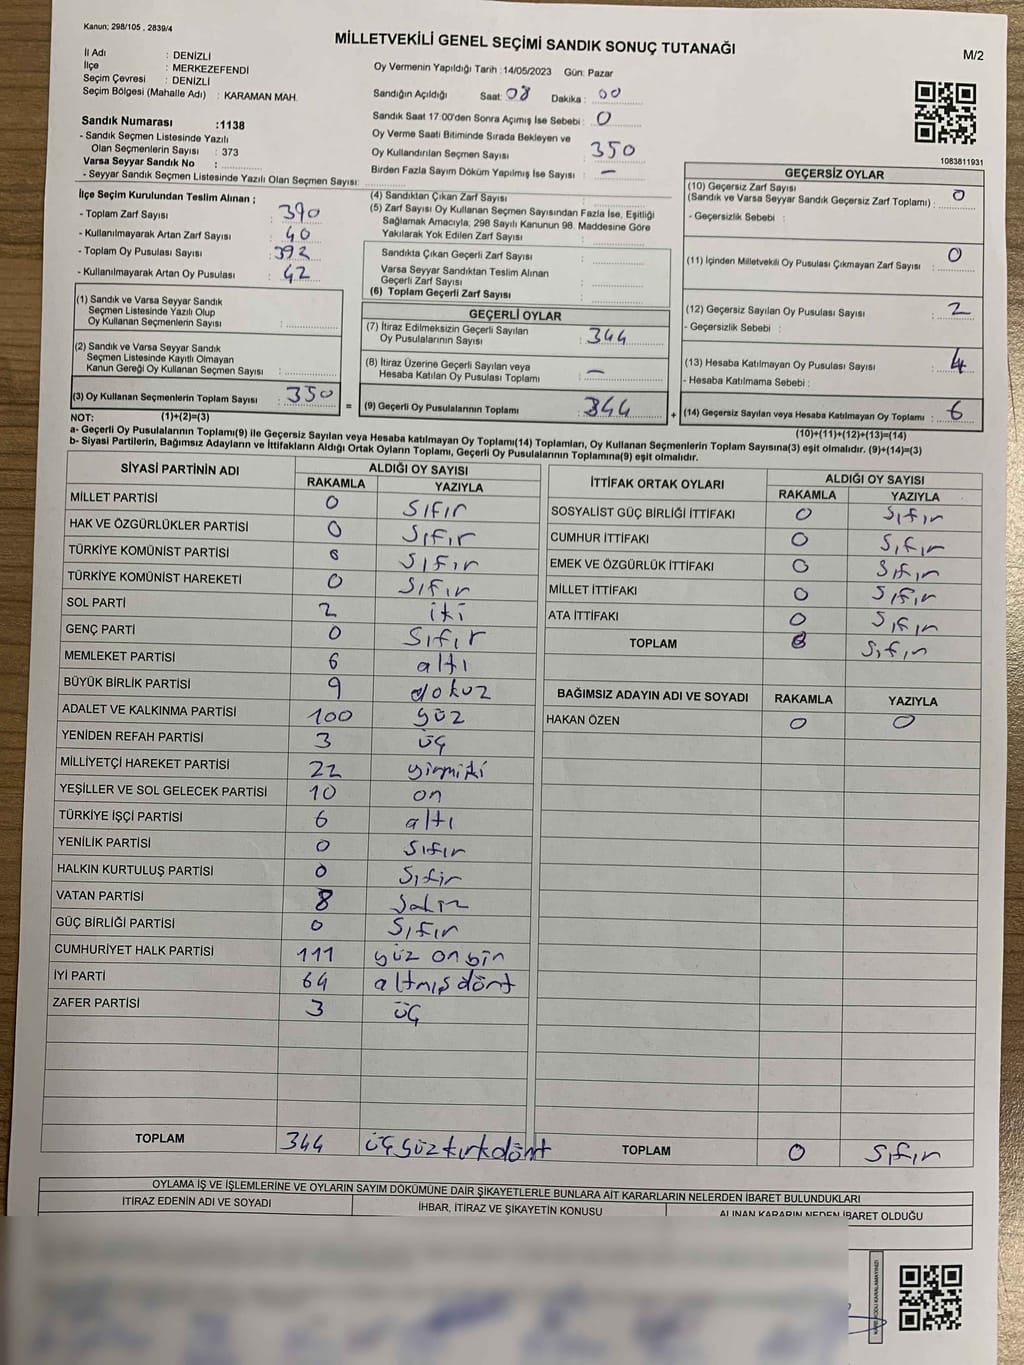 Kanun; 298/105 , 2839/4
MİLLETVEKİLİ GENEL SEÇİMİ SANDIK SONUÇ TUTANAĞI
M/2
İl Adı : DENİZLİ
İlçe : MERKEZEFENDİ
Seçim Çevresi : DENİZLİ
Seçim Bölgesi (Mahalle Adı) : KARAMAN MAH.
Oy Vermenin Yapıldığı Tarih :14/05/2023 Gün: Pazar
Sandığın Açıldığı Saat: 08 Dakika : 00
Sandık Saat 17:00'den Sonra Açımış İse Sebebi : 0
Oy Verme Saati Bitiminde Sırada Bekleyen ve
Oy Kullandırılan Seçmen Sayısı 350
Birden Fazla Sayım Döküm Yapılmış İse Sayısı : –
Sandık Numarası :1138
- Sandık Seçmen Listesinde Yazılı
Olan Seçmenlerin Sayısı : 373
Varsa Seyyar Sandık No :
- Seyyar Sandık Seçmen Listesinde Yazılı Olan Seçmen Sayısı:
1083811931
İlçe Seçim Kurulundan Teslim Alınan ;
- Toplam Zarf Sayısı : 390
- Kullanılmayarak Artan Zarf Sayısı : 40
- Toplam Oy Pusulası Sayısı : 392
- Kullanılmayarak Artan Oy Pusulası : 42
(1) Sandık ve Varsa Seyyar Sandık
Seçmen Listesinde Yazılı Olup
Oy Kullanan Seçmenlerin Sayısı :
(2) Sandık ve Varsa Seyyar Sandık
Seçmen Listesinde Kayıtlı Olmayan
Kanun Gereği Oy Kullanan Seçmen Sayısı :
(3) Oy Kullanan Seçmenlerin Toplam Sayısı : 350
(1)+(2)=(3)
(4) Sandıktan Çıkan Zarf Sayısı :
(5) Zarf Sayısı Oy Kullanan Seçmen Sayısından Fazla İse, Eşitliği
Sağlamak Amacıyla, 298 Sayılı Kanunun 98. Maddesine Göre
Yakılarak Yok Edilen Zarf Sayısı :
Sandıkta Çıkan Geçerli Zarf Sayısı :
Varsa Seyyar Sandıktan Teslim Alınan
Geçerli Zarf Sayısı :
(6) Toplam Geçerli Zarf Sayısı :
GEÇERLİ OYLAR
(7) İtiraz Edilmeksizin Geçerli Sayılan
Oy Pusulalarının Sayısı : 344
(8) İtiraz Üzerine Geçerli Sayılan veya
Hesaba Katılan Oy Pusulası Toplamı : –
= (9) Geçerli Oy Pusulalarının Toplamı : 344
GEÇERSİZ OYLAR
(10) Geçersiz Zarf Sayısı
(Sandık ve Varsa Seyyar Sandık Geçersiz Zarf Toplamı) : 0
- Geçersizlik Sebebi :
(11) İçinden Milletvekili Oy Pusulası Çıkmayan Zarf Sayısı : 0
(12) Geçersiz Sayılan Oy Pusulası Sayısı : 2
- Geçersizlik Sebebi :
(13) Hesaba Katılmayan Oy Pusulası Sayısı : 4
- Hesaba Katılmama Sebebi :
+ (14) Geçersiz Sayılan veya Hesaba Katılmayan Oy Toplamı : 6
(10)+(11)+(12)+(13)=(14)
NOT:
a- Geçerli Oy Pusulalarının Toplamı(9) ile Geçersiz Sayılan veya Hesaba katılmayan Oy Toplamı(14) Toplamları, Oy Kullanan Seçmenlerin Toplam Sayısına(3) eşit olmalıdır. (9)+(14)=(3)
b- Siyasi Partilerin, Bağımsız Adayların ve İttifakların Aldığı Ortak Oyların Toplamı, Geçerli Oy Pusulalarının Toplamına(9) eşit olmalıdır.
SİYASİ PARTİNİN ADI ALDIĞI OY SAYISI
RAKAMLA YAZIYLA
MİLLET PARTİSİ 0 Sıfır
HAK VE ÖZGÜRLÜKLER PARTİSİ 0 Sıfır
TÜRKİYE KOMÜNİST PARTİSİ 0 Sıfır
TÜRKİYE KOMÜNİST HAREKETİ 0 Sıfır
SOL PARTİ 2 iki
GENÇ PARTİ 0 Sıfır
MEMLEKET PARTİSİ 6 altı
BÜYÜK BİRLİK PARTİSİ 9 dokuz
ADALET VE KALKINMA PARTİSİ 100 yüz
YENİDEN REFAH PARTİSİ 3 üç
MİLLİYETÇİ HAREKET PARTİSİ 22 yirmiiki
YEŞİLLER VE SOL GELECEK PARTİSİ 10 on
TÜRKİYE İŞÇİ PARTİSİ 6 altı
YENİLİK PARTİSİ 0 Sıfır
HALKIN KURTULUŞ PARTİSİ 0 Sıfır
VATAN PARTİSİ 8 Sekiz
GÜÇ BİRLİĞİ PARTİSİ 0 Sıfır
CUMHURİYET HALK PARTİSİ 111 yüz onbir
İYİ PARTİ 64 altmışdört
ZAFER PARTİSİ 3 üç
TOPLAM 344 üçyüzkırkdört
İTTİFAK ORTAK OYLARI ALDIĞI OY SAYISI
RAKAMLA YAZIYLA
SOSYALİST GÜÇ BİRLİĞİ İTTİFAKI 0 Sıfır
CUMHUR İTTİFAKI 0 Sıfır
EMEK VE ÖZGÜRLÜK İTTİFAKI 0 Sıfır
MİLLET İTTİFAKI 0 Sıfır
ATA İTTİFAKI 0 Sıfır
TOPLAM 0 Sıfır
BAĞIMSIZ ADAYIN ADI VE SOYADI RAKAMLA YAZIYLA
HAKAN ÖZEN 0 0
TOPLAM 0 Sıfır
OYLAMA İŞ VE İŞLEMLERİNE VE OYLARIN SAYIM DÖKÜMÜNE DAİR ŞİKAYETLERLE BUNLARA AİT KARARLARIN NELERDEN İBARET BULUNDUKLARI
İTİRAZ EDENİN ADI VE SOYADI İHBAR, İTİRAZ VE ŞİKAYETİN KONUSU ALINAN KARARIN NEDEN İBARET OLDUĞU